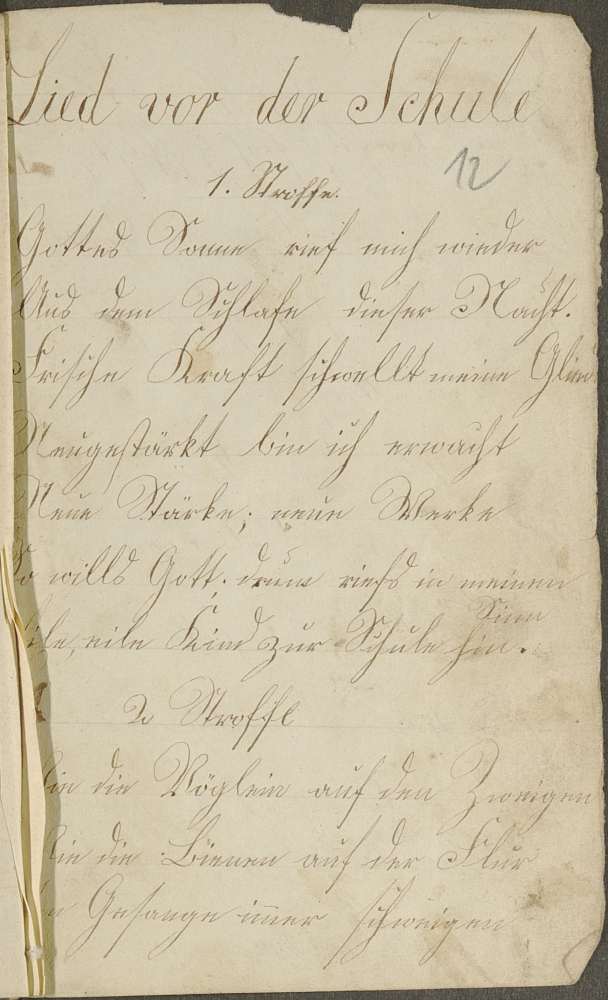 Lied vor der Schule
12
1. Stroffe.
Gottes Sonne rief mich wieder
Aus dem Schlafe dieser Nacht.
Frische Kraft schwellt meine Glie
Neugestärkt bin ich erwacht
Neue Stärke; neue Werke
So wills Gott. drum riefs in meinen
Sinn
eile, eile Kind zur Schule hin.
2 Stroffe
die Vöglein auf den Zweigen
die Bienen auf der Flur
Gesange immer schweigen